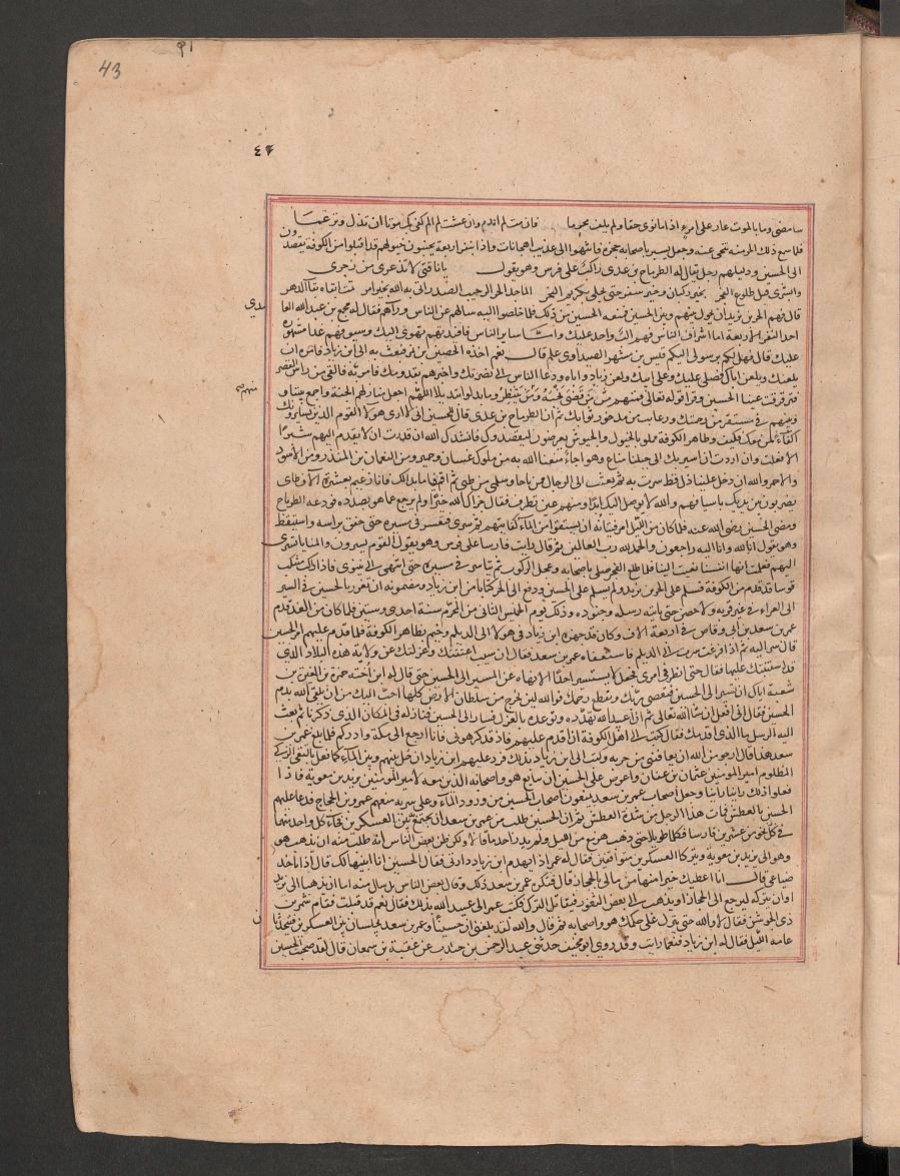 43
٩١
٤٣
سامضي وما بالموت عار على امرء اذا ما نوى حقا ولم يلف مجرما فان مت لم اندم وان عشت لم الم كفى بك موتا ان تذل وترغما
فلما سمع ذلك الحر منه تنحى عنه وجعل يسير باصحابه حجزة فانتهوا الى عذيب الهجانات واذا بنفر اربعة يجنبون خيولهم قد اقبلوا من الكوفة يقصدون
الى الحسين ودليلهم رجل يقال له الطرماح بن عدي راكب على فرس وهو يقول يا ناقتي لا تذعري من زجري
واشتري قبل طلوع الفجر بخير ركبان وخير سفر حتى تحلي بكريم النجر الماجد الحر الرحيب الصدر اتى به الله بخير امر ثمت ابقاه بقا الدهر
قال فهم الحر بن يزيد ان يحول بينهم وبين الحسين فمنعه الحسين من ذلك فلما خلصوا اليه سالهم عن الناس وراءهم فقال له مجمع بن عبد الله العا
مدي
احد النفر الاربعة اما اشراف الناس فهم الب واحد عليك واما سائر الناس فافئدتهم تهوي اليك وسيوفهم غدا مشهورة
عليك قال فهل لكم برسولي اليكم قيس بن مسهر الصيداوي علم قالوا نعم اخذه الحصين بن نمير فبعث به الى ابن زياد فامره ان
يلعنك ويلعن اباك فصلى عليك وعلى ابيك ولعن زياد واباه ودعا الناس الى نصرتك واخبرهم بقدومك فامر به فالقي من راس القصر
فترقرقت عينا الحسين وقرا قوله تعالى فمنهم من قضى نحبه ومنهم من ينتظر وما بدلوا تبديلا اللهم اجعل منازلهم الجنة واجمع بيننا و
منهم
وبينهم في مستقر من رحمتك ورغائب من مدخور ثوابك ثم ان الطرماح بن عدي قال للحسين اني لا ارى هؤلاء القوم الذين يسايرونك
اكفاء لمن معك فكيف وظاهر الكوفة مملو بالخيول والجيوش يعرضون ليقصدوك فانشدك الله ان قدرت ان لا تقدم اليهم شبرا
الا فعلت وان اردت ان اسير بك الى جبلنا مناع وهو اجاء منعنا الله به من ملوك غسان وحمير ومن النعمان بن المنذر ومن الاسود
والاحمر والله ان دخل علينا ذل قط سرت به ثم تبعث الى الرجال من باجا وسلمى من طي ثم اقم فينا ما بدا لك فانا زعيم بعشرة الاف طائي
يضربون بين يديك باسيافهم والله لا يوصل اليك ابدا ومنهم عين تطرف فقال جزاك الله خيرا ولم يرجع عما هو بصدده فودعه الطرماح
ومضى الحسين رضي الله عنه فلما كان من الليل امر فتيانه ان يستقوا من الماء كفايتهم ثم سرى فنعس في سيره حتى خفق براسه واستيقظ
وهو يقول انا لله وانا اليه راجعون والحمد لله رب العالمين ثم قال رايت فارسا على فرس وهو يقول القوم يسيرون والمنايا تسري
اليهم فعلمت انها انفسنا نعيت الينا فلما طلع الفجر صلى باصحابه وعجل الركوب ثم تياسر في مسيره حتى انتهى الى نينوى فاذا راكب متنكب
قوسا قد قدم من الكوفة فسلم على الحر بن يزيد ولم يسلم على الحسين ودفع الى الحر كتابا من ابن زياد ومضمونه ان تعرد بالحسين في السير
الى العراء في غير قرية ولا حصن حتى ياتيه رسله وجنوده وذلك يوم الخميس الثاني من المحرم سنة احدى وستين فلما كان من الغد قدم
عمر بن سعد بن ابي وقاص في اربعة الاف وكان قد جهزه ابن زياد في هؤلاء الى الديلم وخيم بظاهر الكوفة فلما قدم عليهم امر الحسين
قال سر اليه ثم اذا فرغت سرت الى الديلم فاستعفاه عمر بن سعد فقال ان شئت اعفيتك وعزلتك عن ولاية هذه البلاد الذي
قد استنبتك عليها فقال حتى انظر في امري فجعل لا يستشير احدا الا نهاه عن المسير الى الحسين حتى قال له ابن اخته حمزة بن المغيرة بن
شعبة اياك ان تسير الى الحسين فتعصي ربك وتقطع رحمك فوالله لئن تخرج من سلطان الارض كلها احب اليك من ان تلقى الله بدم
الحسين فقال اني افعل ان شا الله تعالى ثم ان عبيد الله تهدده وتوعده بالعزل فسار الى الحسين فنازله في المكان الذي ذكرنا ثم بعث
اليه الرسل ما الذي اقدمك فقال كتب الى اهل الكوفة ان اقدم عليهم فاذ قد كرهوني فانا ارجع الى مكة واذركم فلما بلغ عمر بن
سعد هذا قال ارجو من الله ان يعافيني من حربه وكتب الى ابن زياد بذلك فرد عليه ابن زياد ان حل بينهم وبين الماء كما فعل بالتقي الزكي
المظلوم امير المومنين عثمان بن عفان واعرض على الحسين ان يبايع هو واصحابه الذين معه لامير المومنين يزيد بن معوية فاذا
فعلوا ذلك راينا راينا وجعل اصحاب عمر بن سعد يمنعون اصحاب الحسين من ورود الماء وعلى سرية منهم عمرو بن الحجاج فدعا عليهم
الحسين بالعطش فمات هذا الرجل من شدة العطش ثم ان الحسين طلب من عمر بن سعد ان يجتمع بين العسكرين فجاء كل واحد منهما
في نحو من عشرين فارسا فتكلما طويلا حتى ذهب هزيع من الليل ولم يدر احد ما قالا ولكن ظن بعض الناس انه طلب منه ان يذهب هو
وهو الى يزيد بن معوية ويتركا العسكرين متواقفين فقال عمر اذا يهدم ابن زياد داري فقال الحسين انا ابنيها لك قال اذا ياخذ
ضياعي قال انا اعطيك خيرا منها من مالي بالحجاز قال فتكره عمر بن سعد ذلك وقال بعض الناس بل سال منه اما ان يذهبا الى يزيد
او ان يتركه ليرجع الى الحجاز او يذهب الى بعض الثغور فيقاتل الترك فكتب عمر الى عبيد الله بذلك فقال نعم قد قبلت فقام شمر بن
ذي الجوشن فقال لا والله حتى ينزل على حكمك هو واصحابه ثم قال والله لقد بلغني ان حسينا وعمر بن سعد يجلسان بين العسكرين فيتحدثا
ن
عامة الليل فقال له ابن زياد فنعم ما رايت وقد روى ابو مخنف حدثني عبد الرحمن بن جندب عن عقبة بن سمعان قال لقد صحبت الحسين